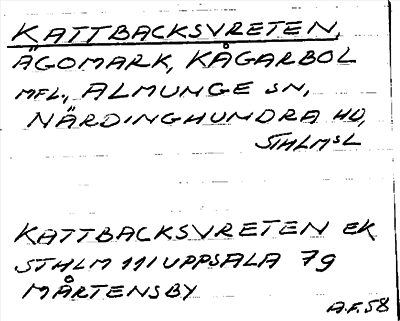 KATTBACKSVRETEN,
ÄGOMARK, KÅGARBOL
MFL., ALMUNGE SN,
NÄRDINGHUNDRA HD,
STHLMSL
KATTBACKSVRETEN EK
STHLM 111 UPPSALA 79
MÅRTENSBY
A.F. 58